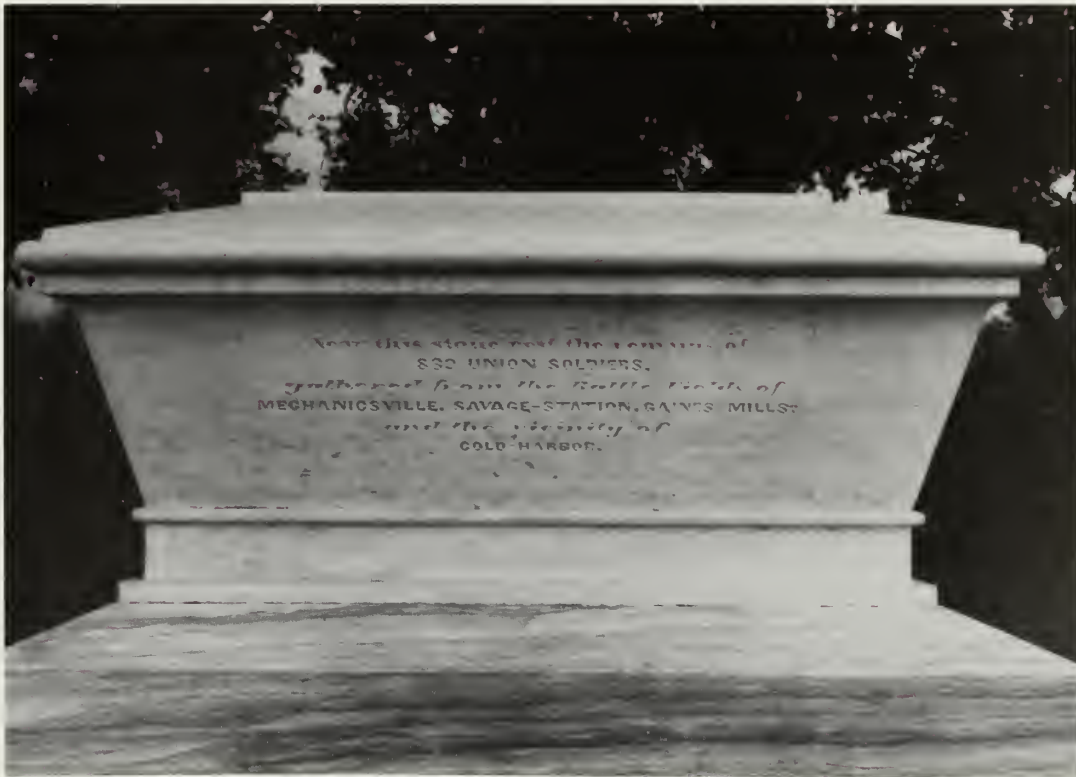 Near this stone rest the remains of
889 UNION SOLDIERS,
gathered from the Battle Fields of
MECHANICSVILLE, SAVAGE-STATION, GAINES MILLS,
and the vicinity of
COLD-HARBOR.